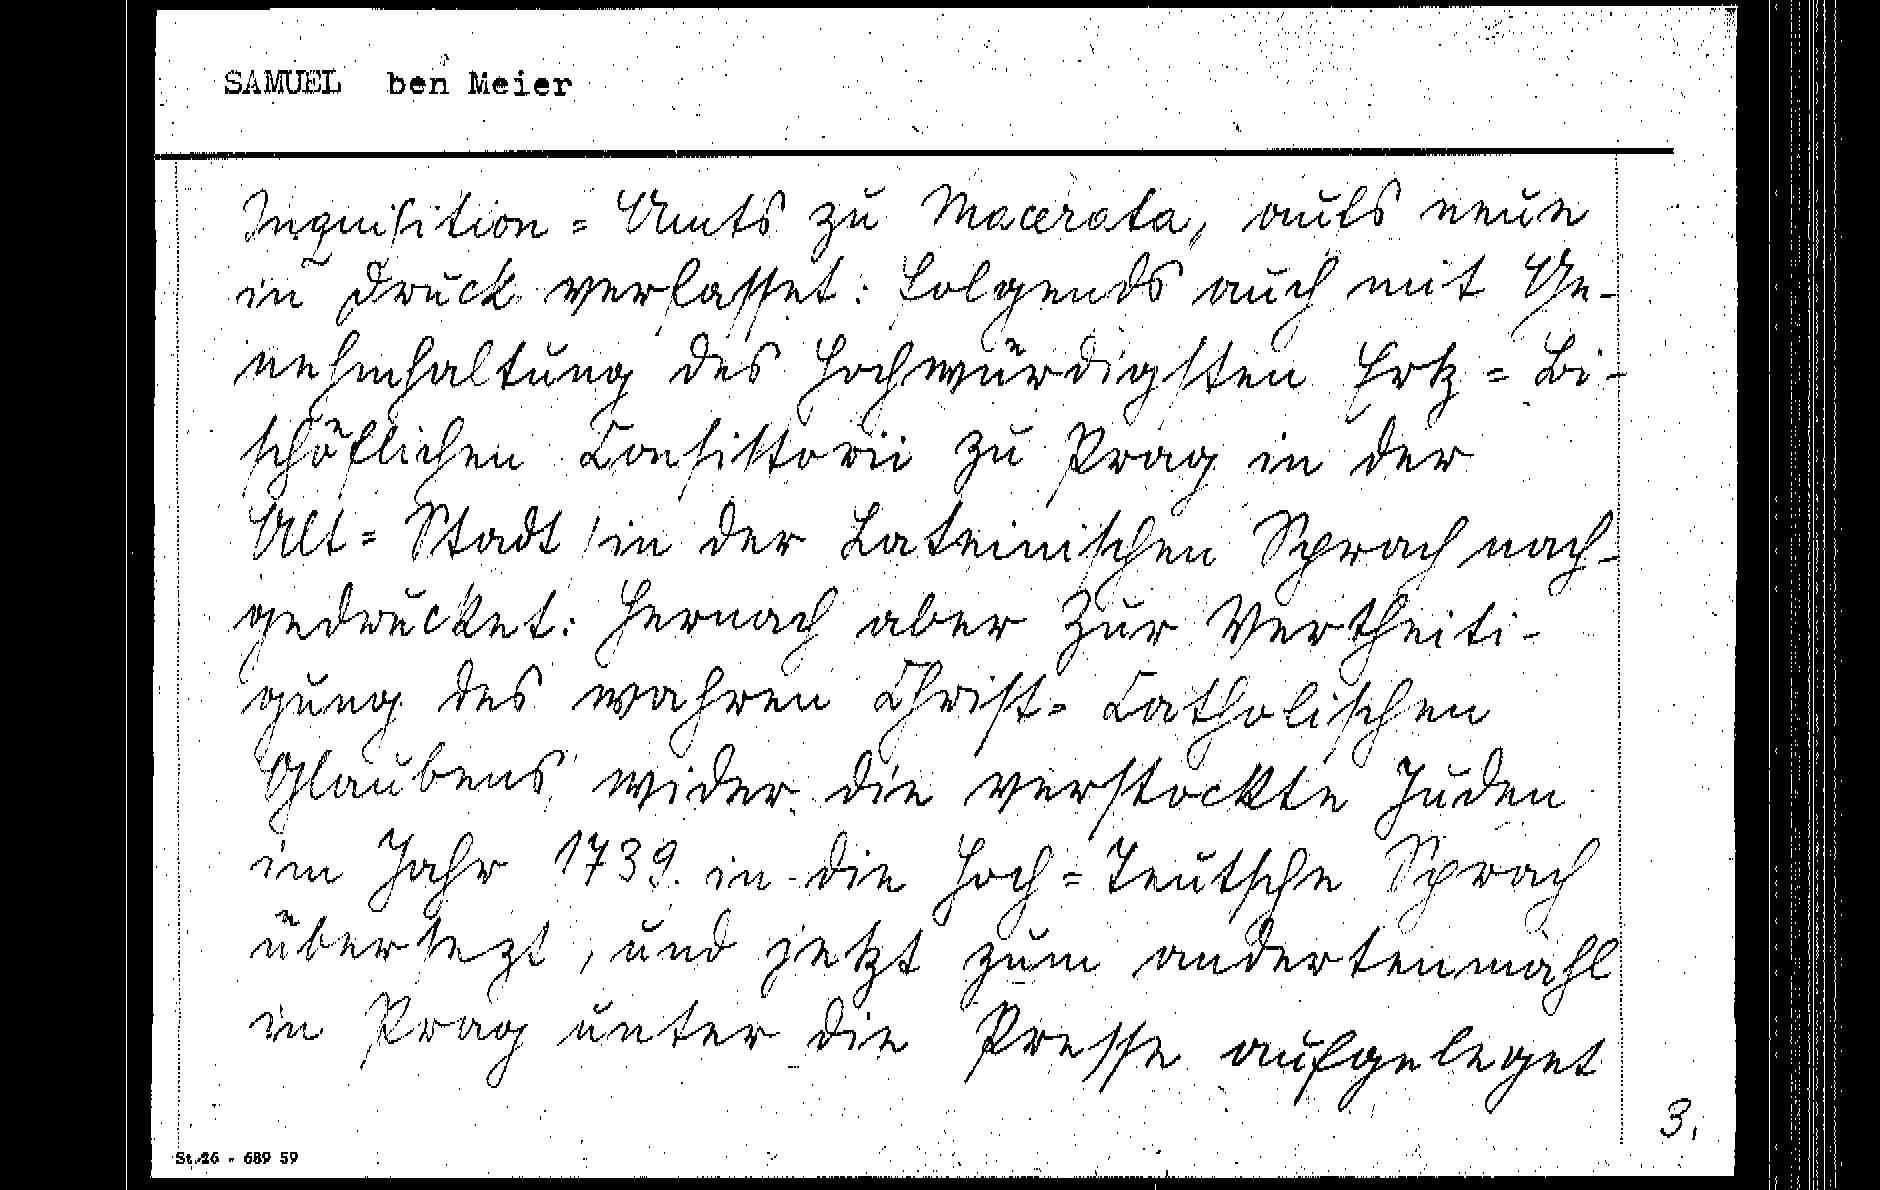 SAMUEL ben Meier
Inquisition = Amts zu Macerata, aufs neue
in Druck verfasset: folgends auch mit Ge-
nehmhaltung des Hochwürdigsten Ertz = Bi-
schöflichen Consistorii zu Prag in der
Alt = Stadt / in der Lateinischen Sprach nach-
gedrucket: Hernach aber zur Vertheiti-
gung des wahren Christ = Catholischen
Glaubens wider die verstockte Juden
im Jahr 1739. in die Hoch = Teutsche Sprach
übersezt, und jetzt zum andertenmahl
in Prag unter die Presse aufgeleget
3.
St.26 - 689 59